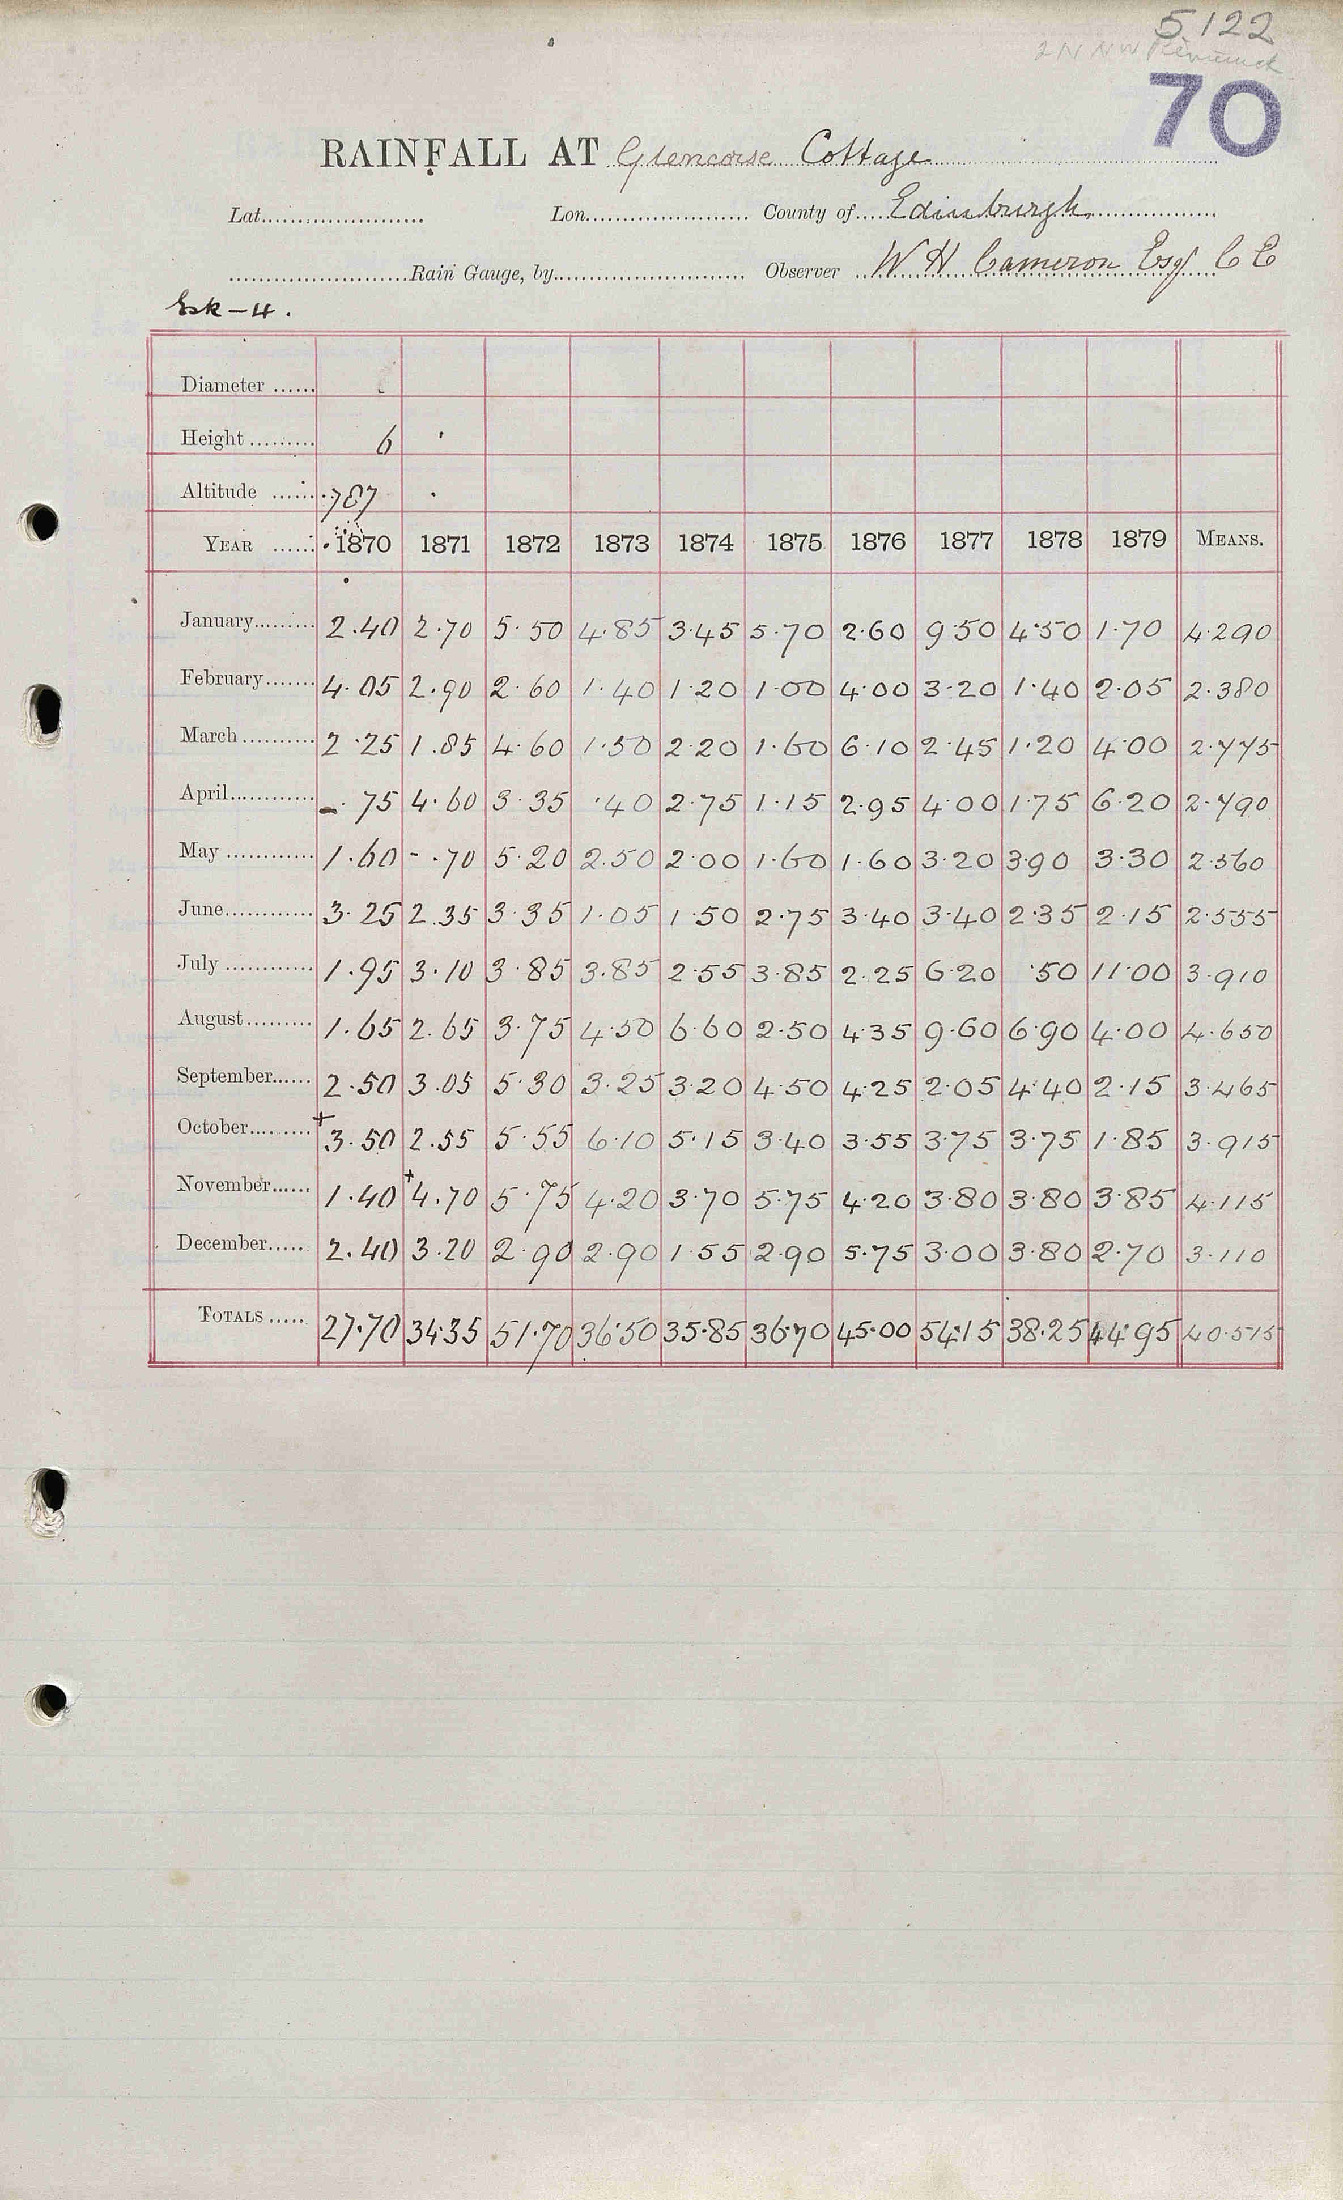 5122
2 N N W
70
RAINFALL AT Glencorse Cottage
Lat. Lon. County of Edinburgh
Rain Gauge, by Observer W H Cameron Esq C E
Esk - 4.
Diameter
Height 6
Altitude 787
YEAR 1870 1871 1872 1873 1874 1875 1876 1877 1878 1879 MEANS.
January 2.40 2.70 5.50 4.85 3.45 5.70 2.60 9.50 4.50 1.70 4.290
February 4.05 2.90 2.60 1.40 1.20 1.00 4.00 3.20 1.40 2.05 2.380
March 2.25 1.85 4.60 1.50 2.20 1.60 6.10 2.45 1.20 4.00 2.775
April -.75 4.60 3.35 .40 2.75 1.15 2.95 4.00 1.75 6.20 2.790
May 1.60 -.70 5.20 2.50 2.00 1.60 1.60 3.20 3.90 3.30 2.560
June 3.25 2.35 3.35 1.05 1.50 2.75 3.40 3.40 2.35 2.15 2.555
July 1.95 3.10 3.85 3.85 2.55 3.85 2.25 6.20 .50 11.00 3.910
August 1.65 2.65 3.75 4.50 6.60 2.50 4.35 9.60 6.90 4.00 4.650
September 2.50 3.05 5.30 3.25 3.20 4.50 4.25 2.05 4.40 2.15 3.465
October +3.50 2.55 5.55 6.10 5.15 3.40 3.55 3.75 3.75 1.85 3.915
November 1.40 +4.70 5.75 4.20 3.70 5.75 4.20 3.80 3.80 3.85 4.115
December 2.40 3.20 2.90 2.90 1.55 2.90 5.75 3.00 3.80 2.70 3.110
TOTALS 27.70 34.35 51.70 36.50 35.85 36.70 45.00 54.15 38.25 44.95 40.515